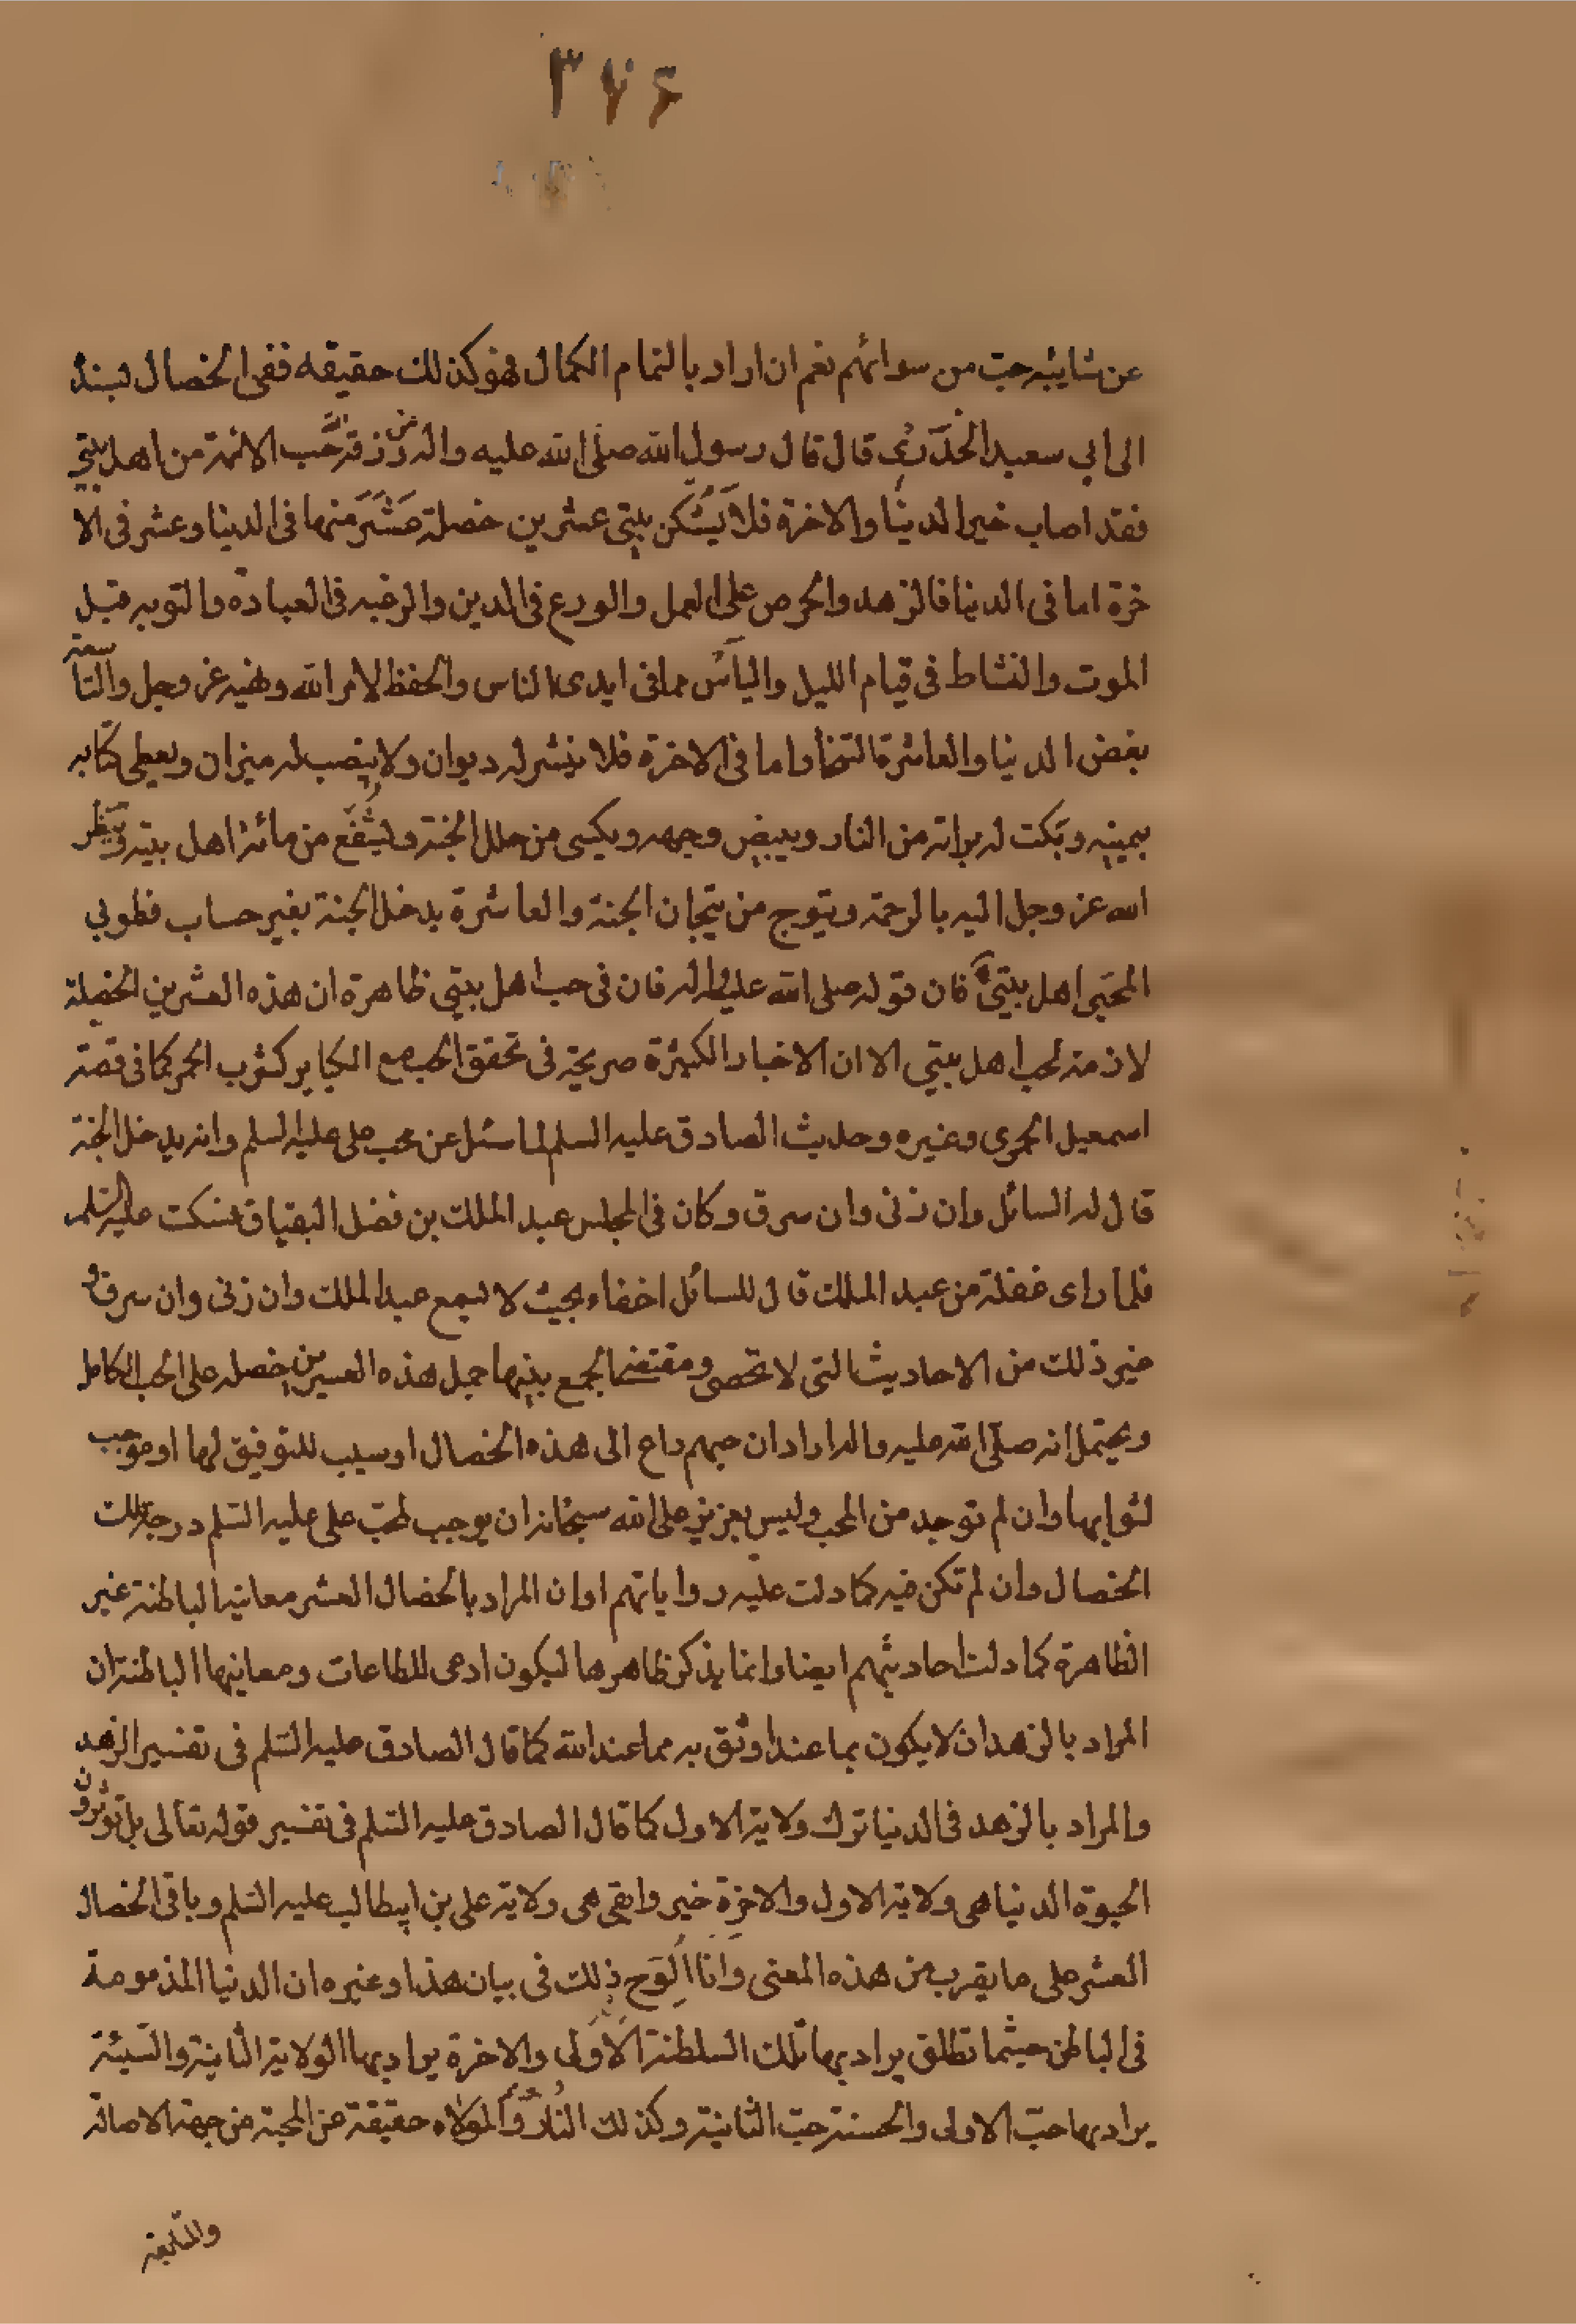 ٣٧۶
عن شايبه حبّ من سوائهم نعم ان اراد بالتمام الكمال فهو كذلك حقيقه ففى الخصال بسند
الى ابي سعيد الخدرى قال قال رسول الله صلى الله عليه واله من رزقه حب الائمة من اهل بيتي
فقد اصاب خير الدنيا والاخرة فلا يشكن بيتى عشرين خصلة عشر منها فى الدنيا وعشر فى الا
خرة اما فى الدنيا فالزهد والحرص على العمل والورع فى الدين والرغبه فى العبادة والتوبه قبل
الموت والنشاط فى قيام الليل والياس مما فى ايدى الناس والحفظ لامر الله ونهيه عز وجل والتاسعة
بغض الدنيا والعاشرة السخا واما فى الاخرة فلا ينشر له ديوان ولا ينصب له ميزان ويعطى كتابه
بيمينه ويكتب له براته من النار ويبيض وجهه ويكسى من حلل الجنة ويشفع من مائة اهل بيته وينظر
الله عز وجل اليه بالرحمة ويتوج من تيجان الجنة والعاشرة يدخل الجنة بغير حساب فطوبى
المحبى اهل بيتى فان قوله صلى الله عليه واله فان فى حب اهل بيتى ظاهرة ان هذه العشرين الخصلة
لازمة لحب اهل بيتي الا ان الاخبار الكثيرة صريحة فى تحقق الحب مع الكباير كشرب الخمر كما فى قصة
اسمعيل الحميرى وغيره وحديث الصادق عليه السلم لما سئل عن محب على عليه السلم وانه يدخل الجنة
قال له السائل وان زنى وان سرق وكان فى المجلس عبد الملك بن فضل البقباق فسكت عليه السلم
فلما راى غفلة من عبد الملك قال للسائل اخفاء بحيث لا يسمع عبد الملك وان زنى وان سرق و
غير ذلك من الاحاديث التى لا تحصى ومقتضى الجمع بينها حمل هذه العشرين خصله على الحب الكامل
ويحتمل انه صلى الله عليه واله اراد ان حبهم داع الى هذه الخصال او سبب للتوفيق لها او موجب
لثوابها وان لم توجد من المحب وليس بعزيز على الله سبحانه ان يوجب لمحب على عليه السلم درجة تلك
الخصال وان لم تكن فيه كما دلت عليه رواياتهم او ان المراد بالخصال العشر معانيه الباطنة غير
الظاهرة كما دلت احاديثهم ايضا وانما يذكر ظاهرها ليكون ادعى للطاعات ومعانيها الباطنة ان
المراد بالزهد ان لا يكون بما عندا وثق به مما عند الله كما قال الصادق عليه السلم فى تفسير الزهد
والمراد بالزهد فى الدنيا ترك ولاية الاول كما قال الصادق عليه السلم فى تفسير قوله تعالى بل تؤثرون
الحيوة الدنيا هى ولاية الاول والاخرة خير وابقى هى ولاية على بن ابيطالب عليه السلم وباقى الخصال
العشر على ما يقرب من هذه المعنى وانا الوح ذلك فى بيان هذا وغيره ان الدنيا المذمومة
فى الباطن حيثما تطلق يراد بها تلك السلطنة الاولى والاخرة يراد بها الولاية الثانية والسيئة
يراد بها حبّ الاولى والحسنة حبّ الثانية وكذلك النار والمولاه حقيقة عن المحبة من جهة الاصالة